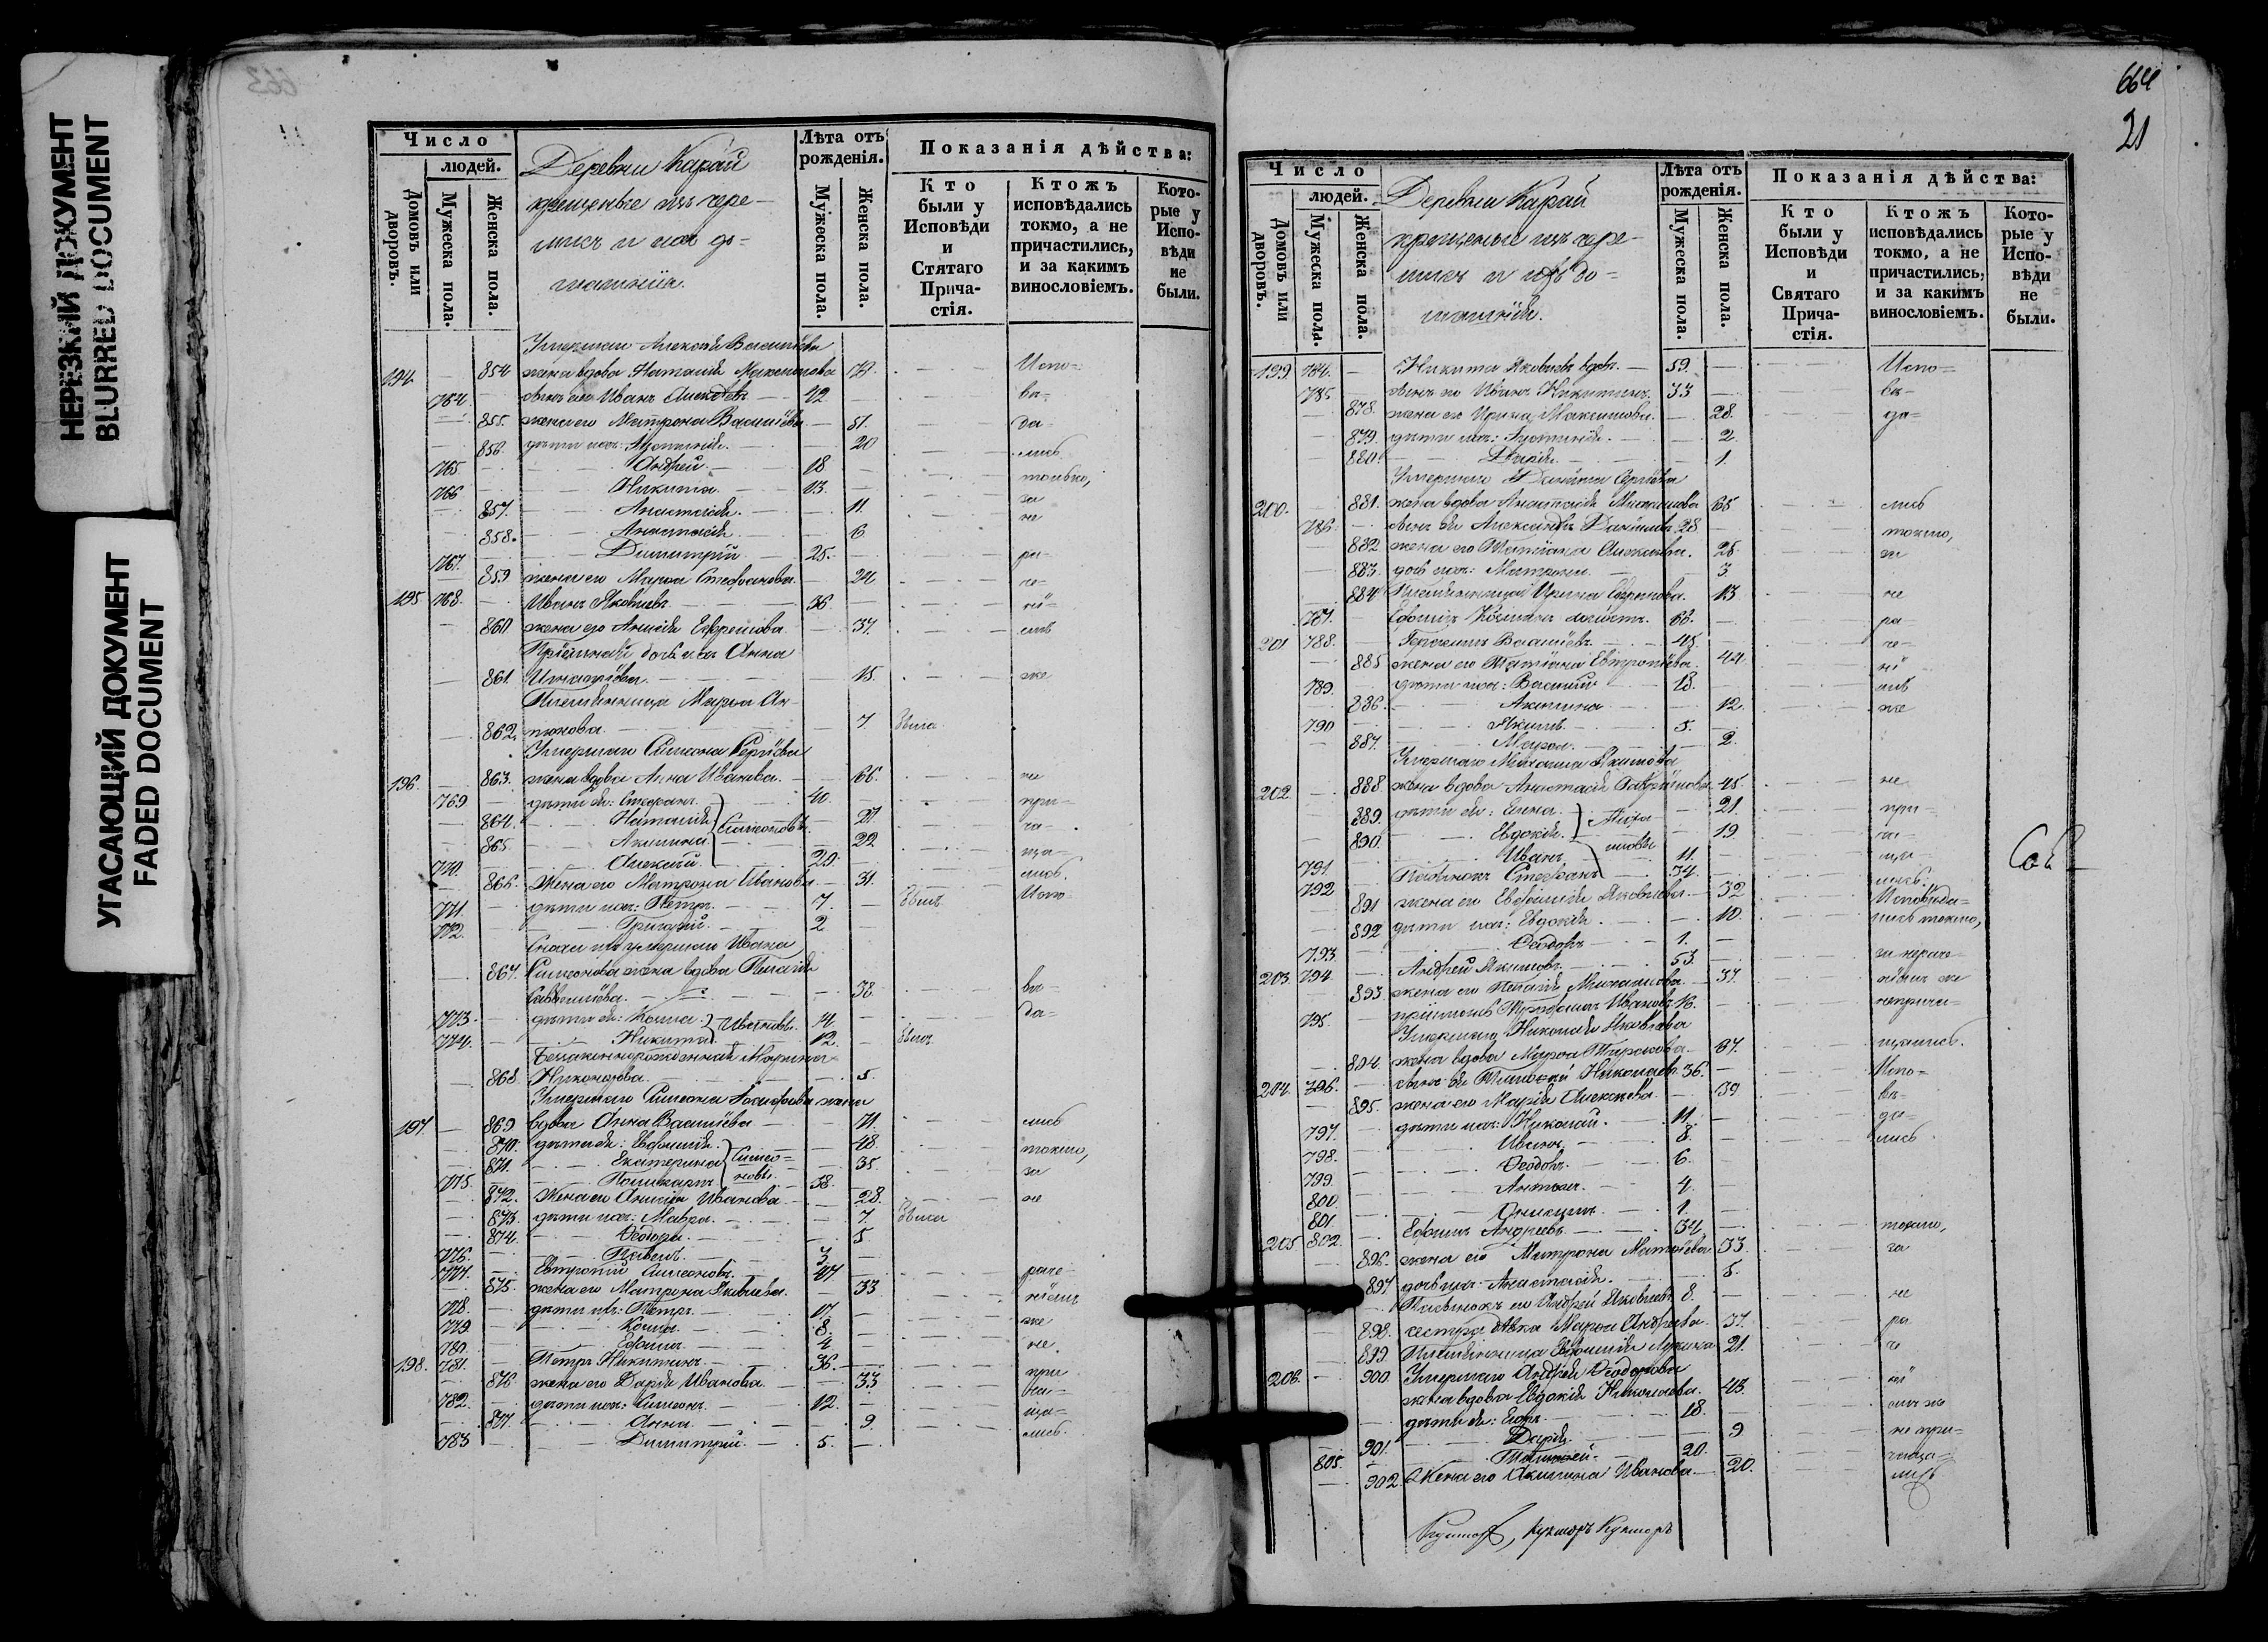 НЕРЕЗКИЙ ДОКУМЕНТ
BLURRED DOCUMENT
УГАСАЮЩИЙ ДОКУМЕНТ
FADED DOCUMENT
Число
людей.
Домовъ или дворовъ.
Мужеска пола.
Женска пола.
Деревни Карай
крещеные изъ чере-
мисъ и ихъ до-
машніи.
Лѣта отъ рожденія.
Мужеска пола.
Женска пола.
Показанія дѣйства:
Кто были у Исповѣди и Стятаго Прича- стія.
Ктожъ исповѣдались токмо, а не причастились, и за какимъ винословіемъ.
Кото- рые у Испо- вѣди не были.
Умершаго Алексѣя Василіева
194 854 жена вдова Наталія Максимова 73 Испо-
764 сынъ ея Иванъ Алексѣевъ 42 вѣ-
855. жена его Матрона Василіева 51. да-
856. дѣти ихъ: 20 лись
765 Андрей 18 только,
766 Никита 13. за
857. Анастасія 11. не
858. Анастасія 6
767. Димитрій 25. ра-
859 жена его Марѳа Стефанова 24 че-
195 768. Иванъ Яковлевъ 36 ні-
860 жена его Анисія Ефремова 37. емъ
Пріемная дочь ихъ Анна
861. Игнатіева 15. же
Племянница Марѳа Ан-
862. тонова 7 была
Умершаго Симеона Сергіева
196. 863. жена вдова Анна Иванова 66. не
769 дѣти ея: Стефанъ 40. при-
864. Наталія Симеоновы 27 ча-
865 Акилина 22 ща-
770. Алексій 29. лись.
866. Жена его Матрона Иванова 31. Испо-
771. дѣти ихъ: Петръ 7 былъ
772. Григорій 2
Сноха ихъ умершаго Ивана
867. Симеонова жена вдова Пелагія
Савельева 38. вѣ-
773. дѣти ея: Косма Ивановы 14 да-
774. Никита 12. былъ
Беззаконнорожденная Марина
868. Никонорова 5.
Умершаго Симеона Іосифова жена
197. 869 вдова Анна Василіева 71. лись
870. дѣти ея: Евфимія 48. токмо,
871. Екатерина Симео- 35. за
775. Поликарпъ новы 38.
872. Жена его Анисія Иванова 28. не
873. дѣти ихъ: Мавра 7. была
874. Ѳеодора 5
776. Павелъ 3
777. Евтропій Симеоновъ 47 раче-
875. жена его Матрона Яковлева 33 ніемъ
778. дѣти ихъ: Петръ 17. же
779. Косма 8.
780. Ефимъ 4 не
198. 781. Петръ Никитинъ 36. при
876 жена его Дарія Иванова 33 ча-
782. дѣти ихъ: Симеонъ 12. ща-
877. Анна 9. лись.
783 Димитрій 5.
664
21
Число
людей.
Домовъ или дворовъ.
Мужеска пола.
Женска пола.
Деревни Карай
крещеные изъ чере-
мисъ и ихъ до-
машніи.
Лѣта отъ рожденія.
Мужеска пола.
Женска пола.
Показанія дѣйства:
Кто были у Исповѣди и Святаго Прича- стія.
Ктожъ исповѣдались токмо, а не причастились, и за какимъ винословіемъ.
Кото- рые у Испо- вѣди не были.
199 784. Никита Яковлевъ вдовъ 59. Испо-
785 сынъ его Иванъ Никитинъ 33 вѣ-
878. жена его Ирина Максимова 28. да-
879. дѣти ихъ: Іустинія 2.
880. Дарія 1.
Умершаго Даніила Сергіева
200. 881. жена вдова Анастасія 65 лись
786. сынъ ея Александръ Даніиловъ 28 токмо,
882 жена его Татіана 25. за
883. дочь ихъ: Матрона 3
884 Племянница Ирина 13 не
787. Ефимъ 66. ра-
201 788. Герасимъ Василіевъ 45. че-
885 жена его Татіана Евтропіева 44 ні-
789. дѣти ихъ: Василій 18. емъ
886. Акилина 12. же
790 Якимъ 5.
887. Марѳа 2.
Умершаго Михаила Якимова
202. 888 жена вдова Анастасія 45. не
889. дѣти ея: Елена Миха- 21. при-
890. Евдокія иловы 19. ча-
791. Иванъ 11. ща-
792 Пасынокъ Стефанъ 34. лись.
891 жена его Евфимія Яковлева 32 Исповѣда-
892 дѣти ихъ: Евдокія 10. лись токмо,
793. Ѳеодоръ 1. за нераче-
203. 794. Андрей Якимовъ 53. ніемъ же
893. жена его Пелагія Михаилова 37. неприча-
795. пріемышъ Трофимъ Ивановъ 16. щались.
Умершаго Николая
894 жена вдова Марѳа 67. Испо-
204. 796. сынъ ея Тимоѳей Николаевъ 36. вѣ-
895. жена его Марія Алексѣева 39 да-
797. дѣти ихъ: Николай 11. лись
798. Иванъ 8.
799. Ѳеодоръ 6.
800. Антонъ 4.
801. 1.
205 802. Ефимъ Андреевъ 34 токмо,
896. жена его Матрона Матвѣева 33. за
897 дочь ихъ Анастасія 5.
Пасынокъ его Андрей Яковлевъ 8. не
898. сестра дѣвка Марѳа Андреева 37. ра
899. Племянница Евфимія 21. че
206. 900. Умершаго Андрея Ѳеодорова ні
жена вдова Евдокія Николаева 43. емъ же
дѣти ея: Егоръ 18. не при-
901. Дарія 9 чаща-
805. Тимоѳей 20. лись
902. Жена его Акилина Иванова 20.
Соб